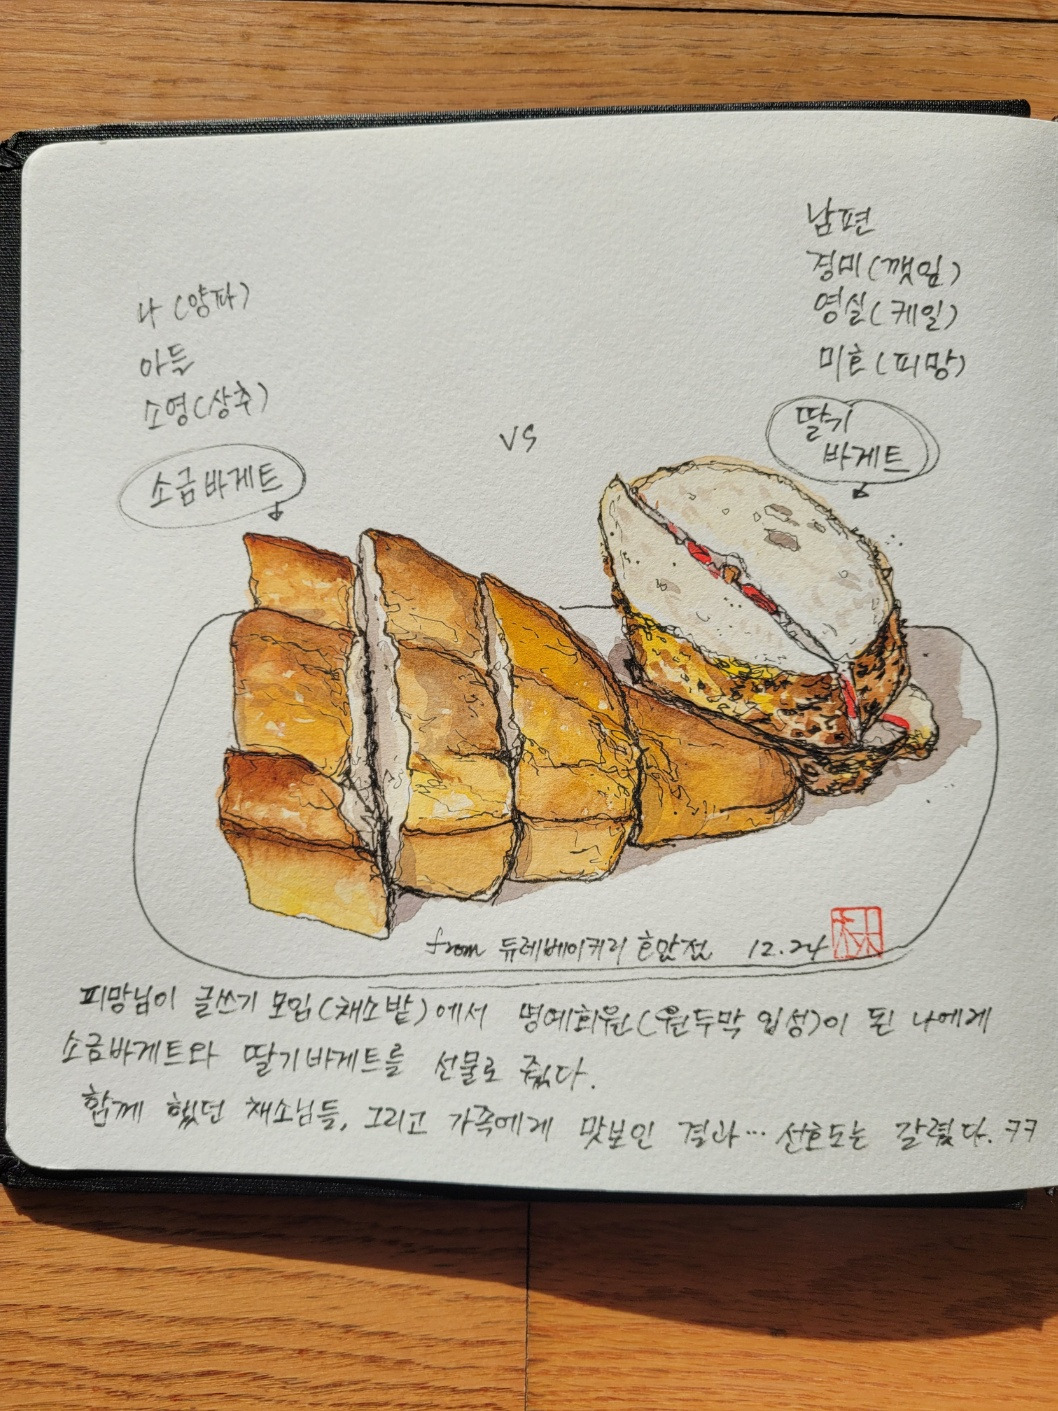 나 (양파)
아들
소영(상추)
소금바게트
vs
남편
경미(깻잎)
영실(케일)
미흔(피망)
딸기
바게트
from 듀레베이커리 12.24
피망님이 글쓰기 모임(채소밭)에서 명예회원(원두막 입성)이 된 나에게
소금바게트와 딸기바게트를 선물로 줬다.
함께 했던 채소님들, 그리고 가족에게 맛보인 결과… 선호도는 갈렸다. ㅋㅋ